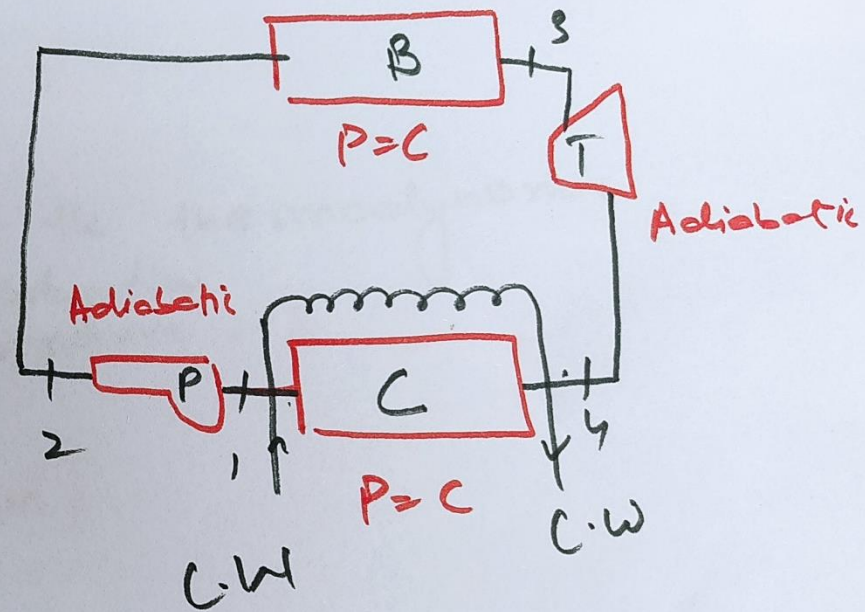 B
3
P=C
T
Adiabatic
Adiabatic
P
C
2
1
4
P=C
C.W
C.W